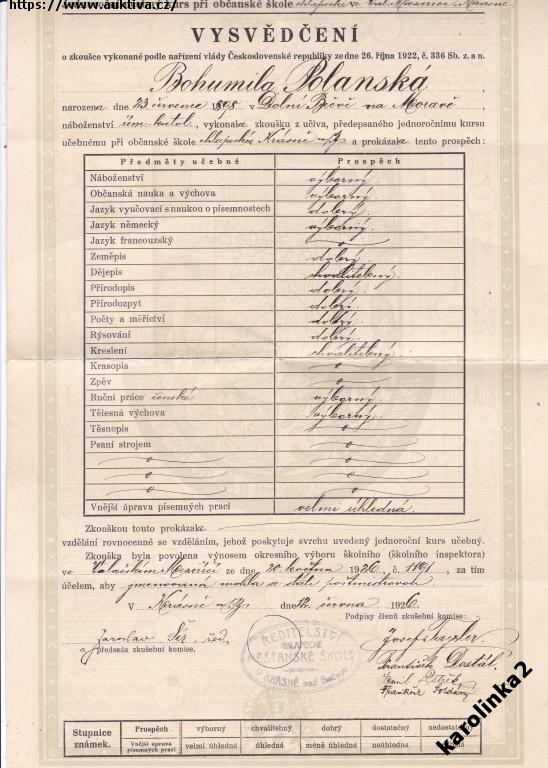 https://www.auktiva.cz/ kurs při občanské škole chlapecké ve Val. Meziříčí-Krásně
VYSVĚDČENÍ
o zkoušce vykonané podle nařízení vlády Československé republiky ze dne 26. října 1922, č. 336 Sb. z. a n.
Bohumila Polanská
narozena dne 23 července 1898 v Dolní Bečvě na Moravě
náboženství řím-katol., vykonala zkoušku z učiva, předepsaného jednoročnímu kursu
učebnému při občanské škole chlapecké v Krásně n/B a prokázala tento prospěch:
Předměty učebné Prospěch
Náboženství výborný.
Občanská nauka a výchova výborný.
Jazyk vyučovací s naukou o písemnostech dobrý.
Jazyk německý výborný.
Jazyk francouzský
Zeměpis dobrý.
Dějepis chvalitebný.
Přírodopis dobrý.
Přírodozpyt dobrý.
Počty a měřictví dobrý.
Rýsování dobrý.
Kreslení chvalitebný.
Krasopis
Zpěv
Ruční práce ženské výborný.
Tělesná výchova výborný.
Těsnopis
Psaní strojem
Vnější úprava písemných prací velmi úhledná.
Zkouškou touto prokázala
vzdělání rovnocenné se vzděláním, jehož poskytuje svrchu uvedený jednoroční kurs učebný.
Zkouška byla povolena výnosem okresního výboru školního (školního inspektora)
ve Valašském Meziříčí ze dne 20 května 1926 č. za tím
účelem, aby jmenovaná mohla se státi poštmistrovou
V Krásně n/B dne 12. června 1926
Podpisy členů zkušební komise:
Jaroslav Šír, řed.
předseda zkušební komise.
ŘEDITELSTVÍ
CHLAPECKÉ
MĚŠŤANSKÉ ŠKOLY
V KRÁSNĚ nad Bečvou
Josef
František Dostál
Emil
František
Stupnice známek. Prospěch výborný chvalitebný dobrý dostatečný
Vnější úprava písemných prací velmi úhledná úhledná méně úhledná neúhledná
karolinka2